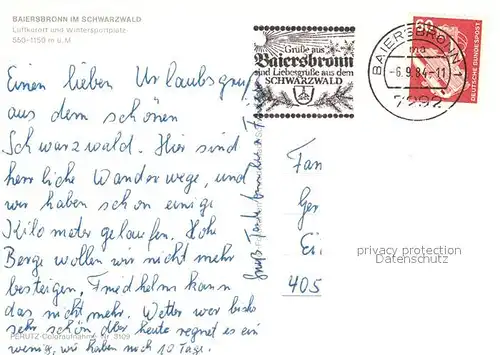 BAIERSBRONN IM SCHWARZWALD
Luftkurort und Wintersportplatz
550-1150 m ü. M
Einen lieben Urlaubsgruß
aus dem schönen
Schwarzwald. Hier sind
herrliche Wanderwege, und
wir haben schon einige
Kilometer gelaufen. Hohe
Berge wollen wir nicht mehr
besteigen, Friedhelm kann
das nicht mehr. Wetter war bisher
sehr schön, aber heute regnet es ein
wenig, wir haben noch 10 Tage.
PERUTZ-Coloraufnahme Nr. 3109
Gruß Tante
Grüße aus
Baiersbronn
sind Liebesgrüße aus dem
SCHWARZWALD
BAIERSBRONN 1
-6.9.84-11
7292
60
DEUTSCHE BUNDESPOST
Fam
Ger
Ei
405
privacy protection
Datenschutz